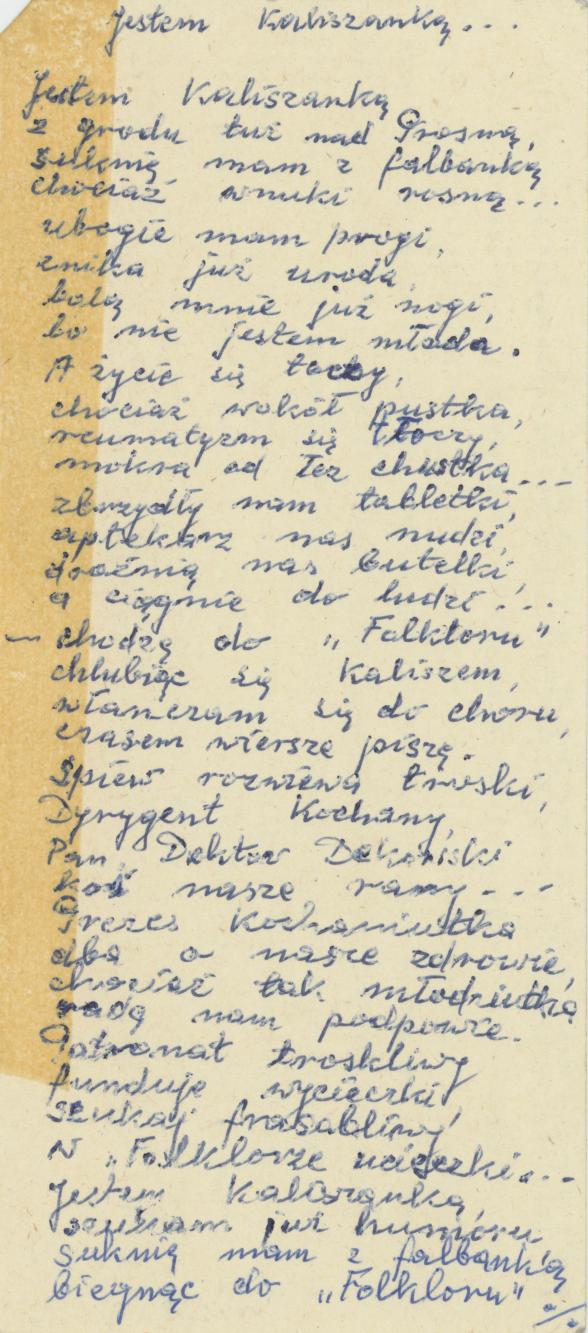 Jestem Kaliszanką...
Jestem Kaliszanką
z grodu tuż nad Prosną,
suknię mam z falbanką
chociaż wnuki rosną...
ubogie mam progi,
znika już uroda,
bolą mnie już nogi,
bo nie jestem młoda.
A życie się toczy,
chociaż wokół pustka,
reumatyzm się tłoczy,
mokra od łez chustka...
zbrzydły nam tabletki,
aptekarz nas nudzi,
drożnią nas butelki,
a ciągnie do ludzi...
– chodzę do „Folkloru"
chlubiąc się Kaliszem,
włanczam się do chóru,
czasem wiersze piszę.
Śpiew rozwiewa troski,
Dyrygent Kochany,
Pan Doktor
koi nasze rany...
Prezes Kochaniutka
dba o nasze zdrowie,
chociaż tak młodziutka
radę nam podpowie.
Patronat troskliwy
funduje wycieczki,
szukaj frasobliwy
W „Folklorze ucieczki...
Jestem Kaliszanką
szukam już humoru
suknię mam z falbanką
biegnąc do „Folkloru"
./.